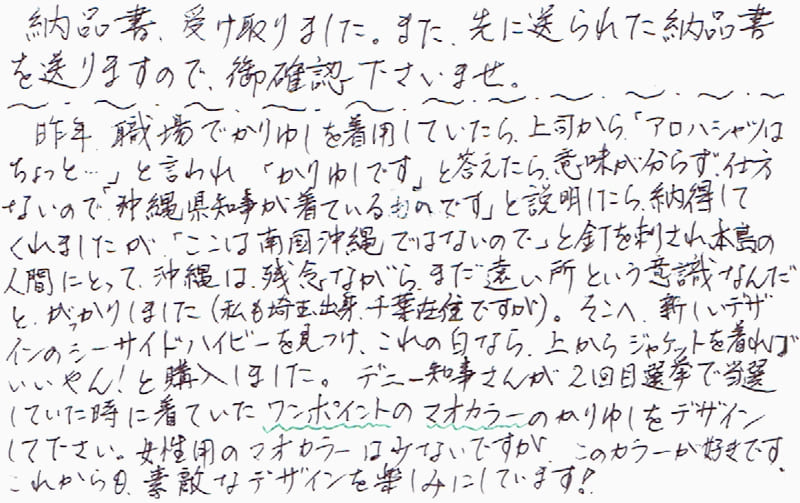 納品書、受け取りました。また、先に送られた納品書
を送りますので、御確認下さいませ。
昨年、職場でかりゆしを着用していたら、上司から、「アロハシャツは
ちょっと…」と言われ「かりゆしです」と答えたら、意味が分らず、仕方
ないので「沖縄県知事が着ているものです」と説明したら、納得して
くれましたが、「ここは南国沖縄ではないので」と釘を刺され本島の
人間にとって、沖縄は、残念ながら、まだ遠い所という意識なんだ
と、がっかりしました(私も埼玉出身、千葉在住ですが)。そこへ、新しいデザ
インのシーサイドハイビーを見つけ、これの白なら、上からジャケットを着れば
いいやん!と購入しました。デニー知事さんが2回目選挙で当選
していた時に着ていたワンポイントのマオカラーのかりゆしをデザイン
して下さい。女性用のマオカラーはみないですが、このカラーが好きです。
これからも、素敵なデザインを楽しみにしています!